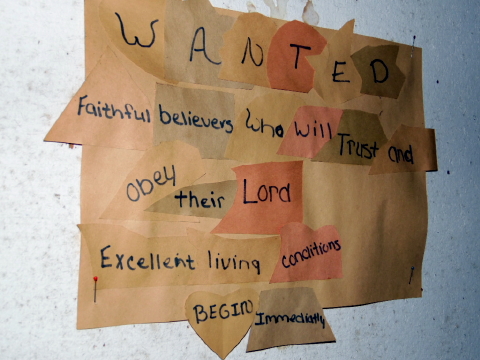 WANTED
Faithful believers Who will Trust and
obey their Lord
Excellent living conditions
BEGIN Immediatly